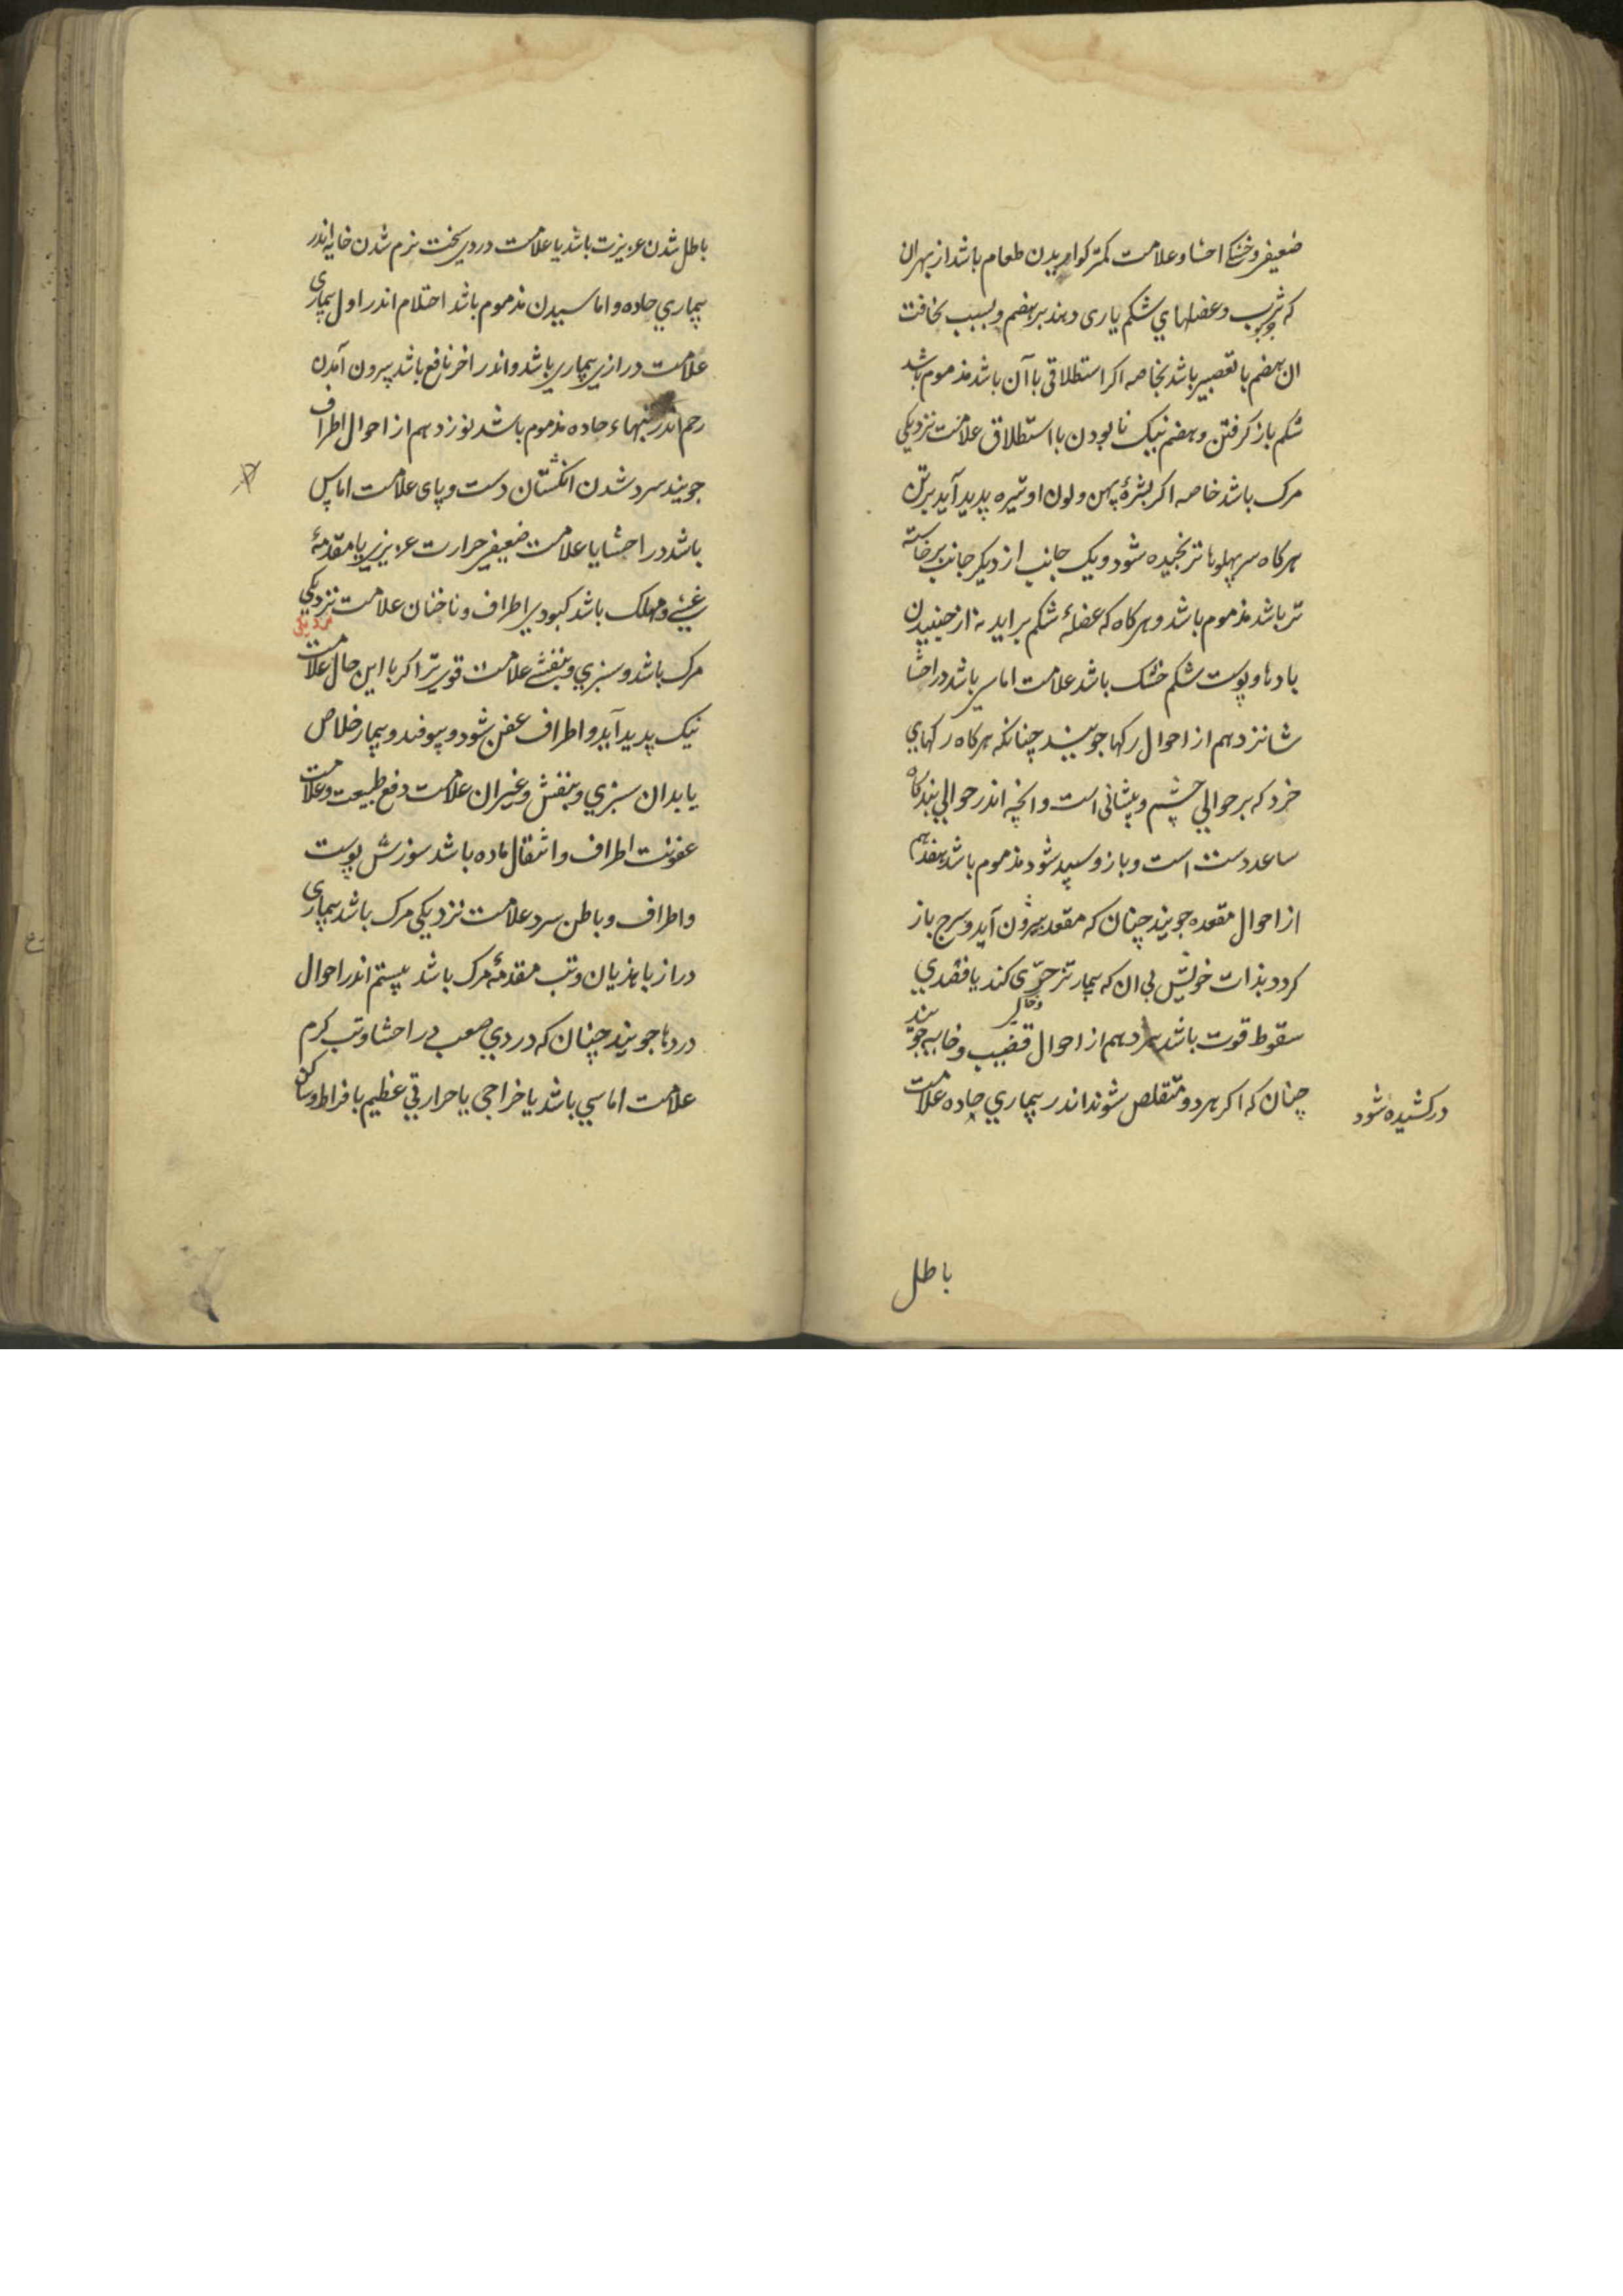 ضعیفی و خشکی احشا و علامت کمتر کواریدن طعام باشد از بهر ان
که ثرب و عضلهاي شکم یاری دهند بر هضم و بسبب نحافت
ان هضم با تقصیر باشد بخاصه اکر استطلاقی با آن باشد مذموم باشد
شکم باز کرفتن و هضم نیک نابودن با استطلاق علامت نزدیکی
مرک باشد خاصه اکر بشرهٔ پهن و لون او تیره پدید آید بر تن
هرکاه سر پهلوها ترنجیده شود و یک جانب از دیکر جانب برخاسته
تر باشد مذموم باشد و هرکاه که عضلهٔ شکم براید نه از جنبیدن
بادها و پوست شکم خشک باشد علامت اماسی باشد در احشا
شانزدهم از احوال رکها جویند چنانکه هرکاه رکهاي
خرد که بر حوالي چشم و پیشانی است و انچه اندر حوالي بندکاه
ساعد دست است و بازو سپید شود مذموم باشد هفدهم
از احوال مقعده جویند چنان که مقعد بیرون آید و سرج باز
کردد بذات خویش بی ان که بیمار تزحّری کند یا قصدي
سقوط قوت باشد دهم از احوال قضیب و خایه جویند
چنان که اکر هردو متقلص شوند اندر بیماري حاده علامت
درکشیده شود
باطل
باطل شدن عزیزت باشد یا علامت دردی سخت نرم شدن خایه اندر
بیماري حاده و اماسیدن مذموم باشد احتلام اندر اول بیماری
علامت درازی بیماری باشد و اندر اخر نافع باشد بیرون آمدن
رحم اندر تبهاء حاده مذموم باشد نوزدهم از احوال اطراف
جویند سرد شدن انکشتان دست و پای علامت اماس
باشد در احشا یا علامت ضعیفی حرارت عزیزی یا مقدمهٔ
غشي و مهلک باشد کبودی اطراف و ناخنان علامت نزدیکی
نزدیکی
مرک باشد و سبزي و بنفشي علامت قوی تر اکر با این حال علامت
نیک پدید آید و اطراف عفن شود و بیوفتد و بیمار خلاص
یابد ان سبزي و بنفش و غیر ان علامت دفع طبیعت و علامت
عفونت اطراف و انتقال ماده باشد سوزش پوست
و اطراف و باطن سرد علامت نزدیکی مرک باشد بیماری
دراز با هذیان و تب مقدمهٔ مرک باشد بیستم اندر احوال
دردها جویند چنان که دردي صعب در احشا و تب کرم
علامت اماسي باشد یا خراجی یا حرارتي عظیم بافراط و ساکن